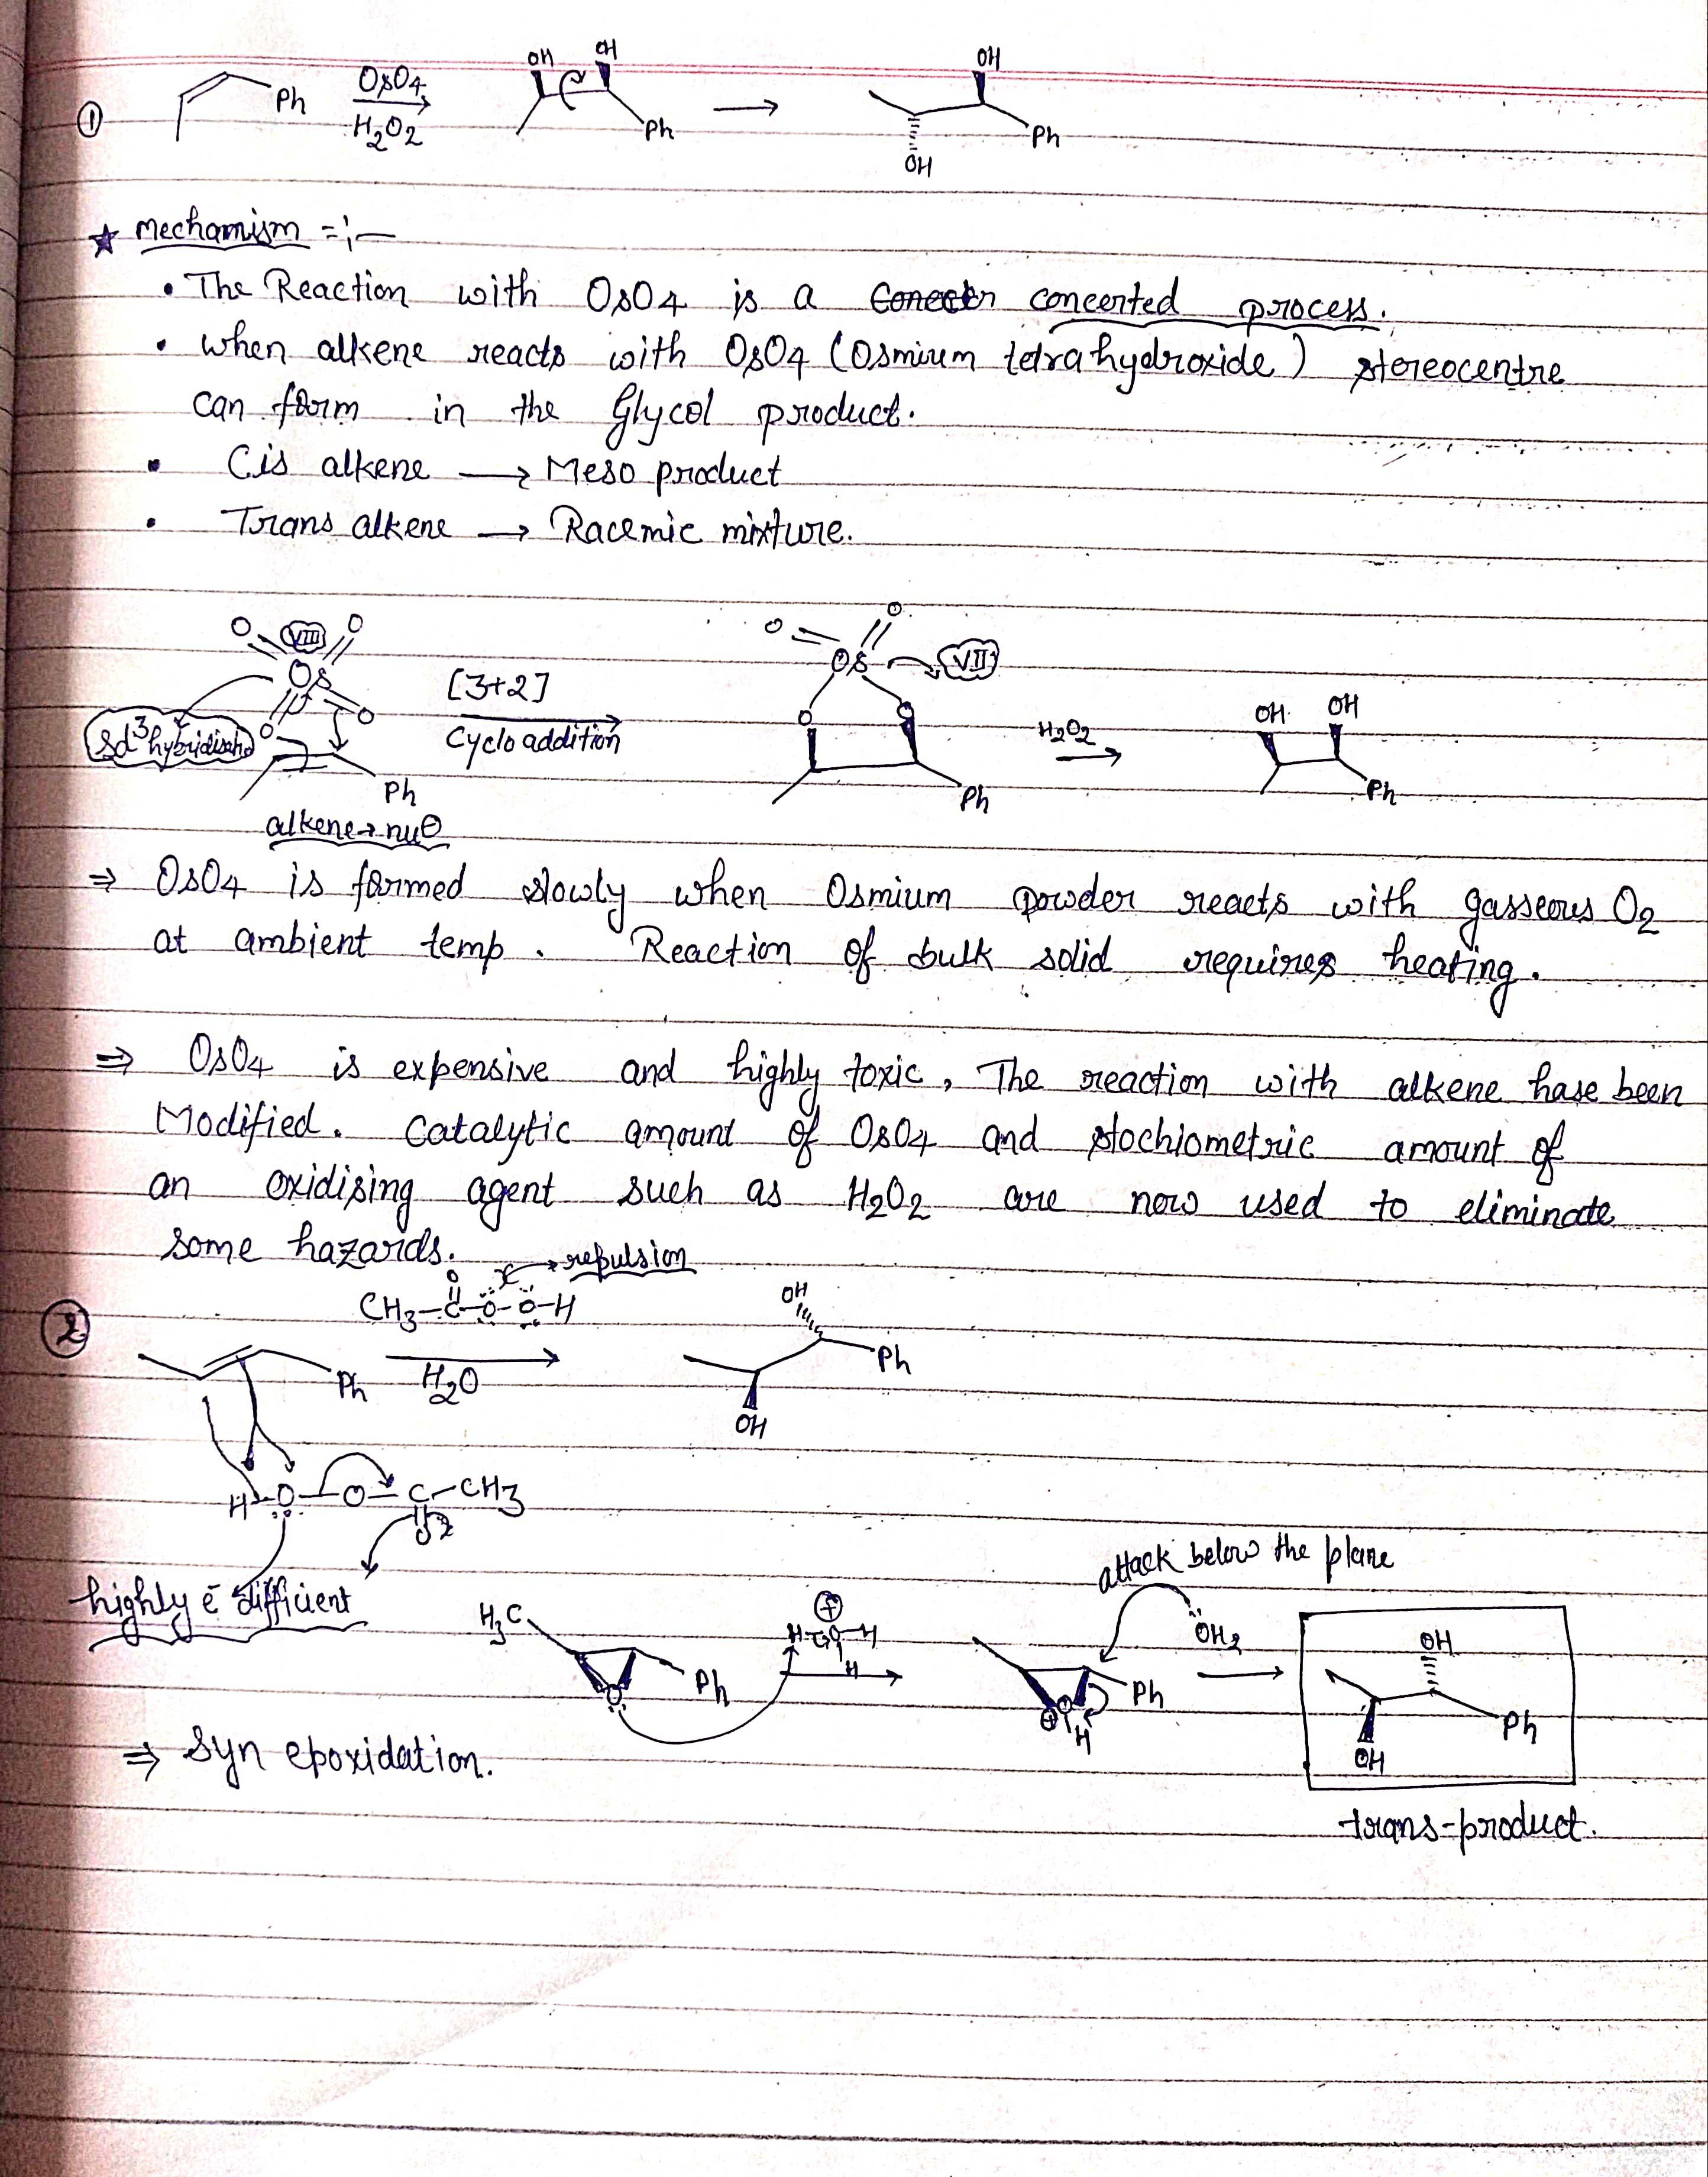 OH OH OH
① Ph OsO4 H2O2 Ph → Ph
OH
★ Mechamism =;—
• The Reaction with OsO4 is a concerted process.
• when alkene reacts with OsO4 (Osmium tetrahydroxide) stereocentre
can form in the Glycol product.
• Cis alkene → Meso product
• Trans alkene → Racemic mixture.
O VIII O O O
Os Os VII
[3+2] OH OH
O O O O H2O2
Sd3 hybridisatio Cyclo addition
Ph Ph Ph
alkene → nu⊖
⇒ OsO4 is formed slowly when Osmium powder reacts with gasseous O2
at ambient temp. Reaction of bulk solid requires heating.
⇒ OsO4 is expensive and highly toxic, The reaction with alkene hase been
Modified. Catalytic amount of OsO4 and stochiometric amount of
an oxidising agent such as H2O2 are now used to eliminate
some hazards.
→ repulsion
O
CH3-C-O-O-H OH
②
Ph H2O Ph
OH
H-O-O-C-CH3
O
highly e̅ difficient
attack below the plane
H3C Ph O H-O-H H ⊕ → Ph O H ⊕ ÖH2 → OH Ph OH
⇒ Syn epoxidation.
trans-product.